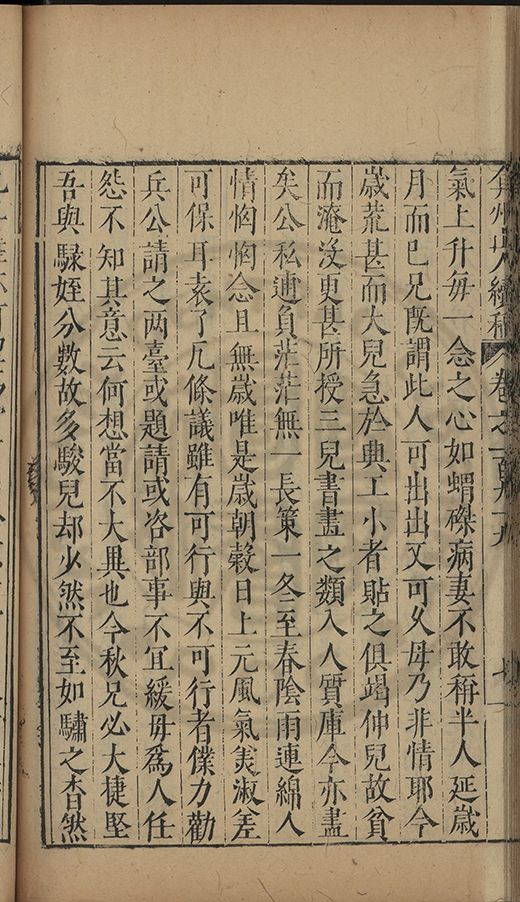 弇州山人續稿 卷之一百九十九
氣上升每一念之心如蝟磔病妻不敢稱半人延歲
月而已兄既謂此人可出出又可久毋乃非情耶今
歲荒甚而大兒急於典工小者貼之俱竭仲兒故貧
而淹沒更甚所授三兒書畫之類入人質庫今亦盡
矣公私逋負茫茫無一長策一冬至春陰雨連綿人
情恟恟念且無歲唯是歲朝穀日上元風氣美淑差
可保耳袁了凡條議雖有可行與不可行者僕力勸
兵公請之兩臺或題請或咨部事不宜緩毋為人任
怨不知其意云何想當不大異也今秋兄必大捷堅
吾與騄姪分數故多駿兒却少然不至如驌之杳然